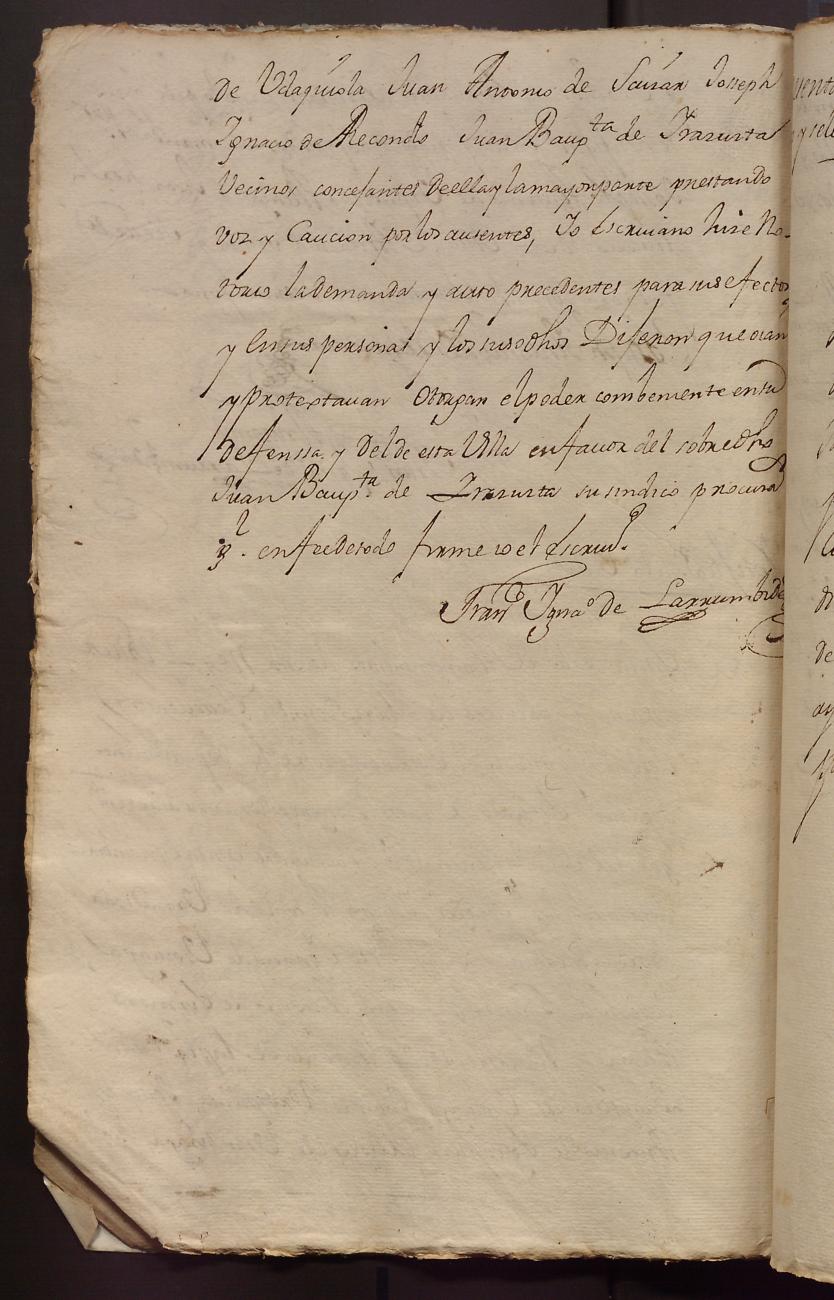 de Vdaquiola Juan Antonio de Joseph
Ignacio de Recondo Juan Baupta de Yrazusta
Vecinos concejantes de ella y la mayor parte prestando
voz y Caucion por los ausentes, Yo Escriuano hize No-
torio la demanda y auto precedentes para sus efectos
y En sus personas y los susodhos Dijeron que oian
y protextauan Otorgar el poder combeniente en su
defenssa y del de esta Villa en fauor del sobredho
Juan Baupta de Yrazusta su sindico procurad
gl. en fee de todo firme yo el Escriuo.
Franco Ignao de Larrumbide